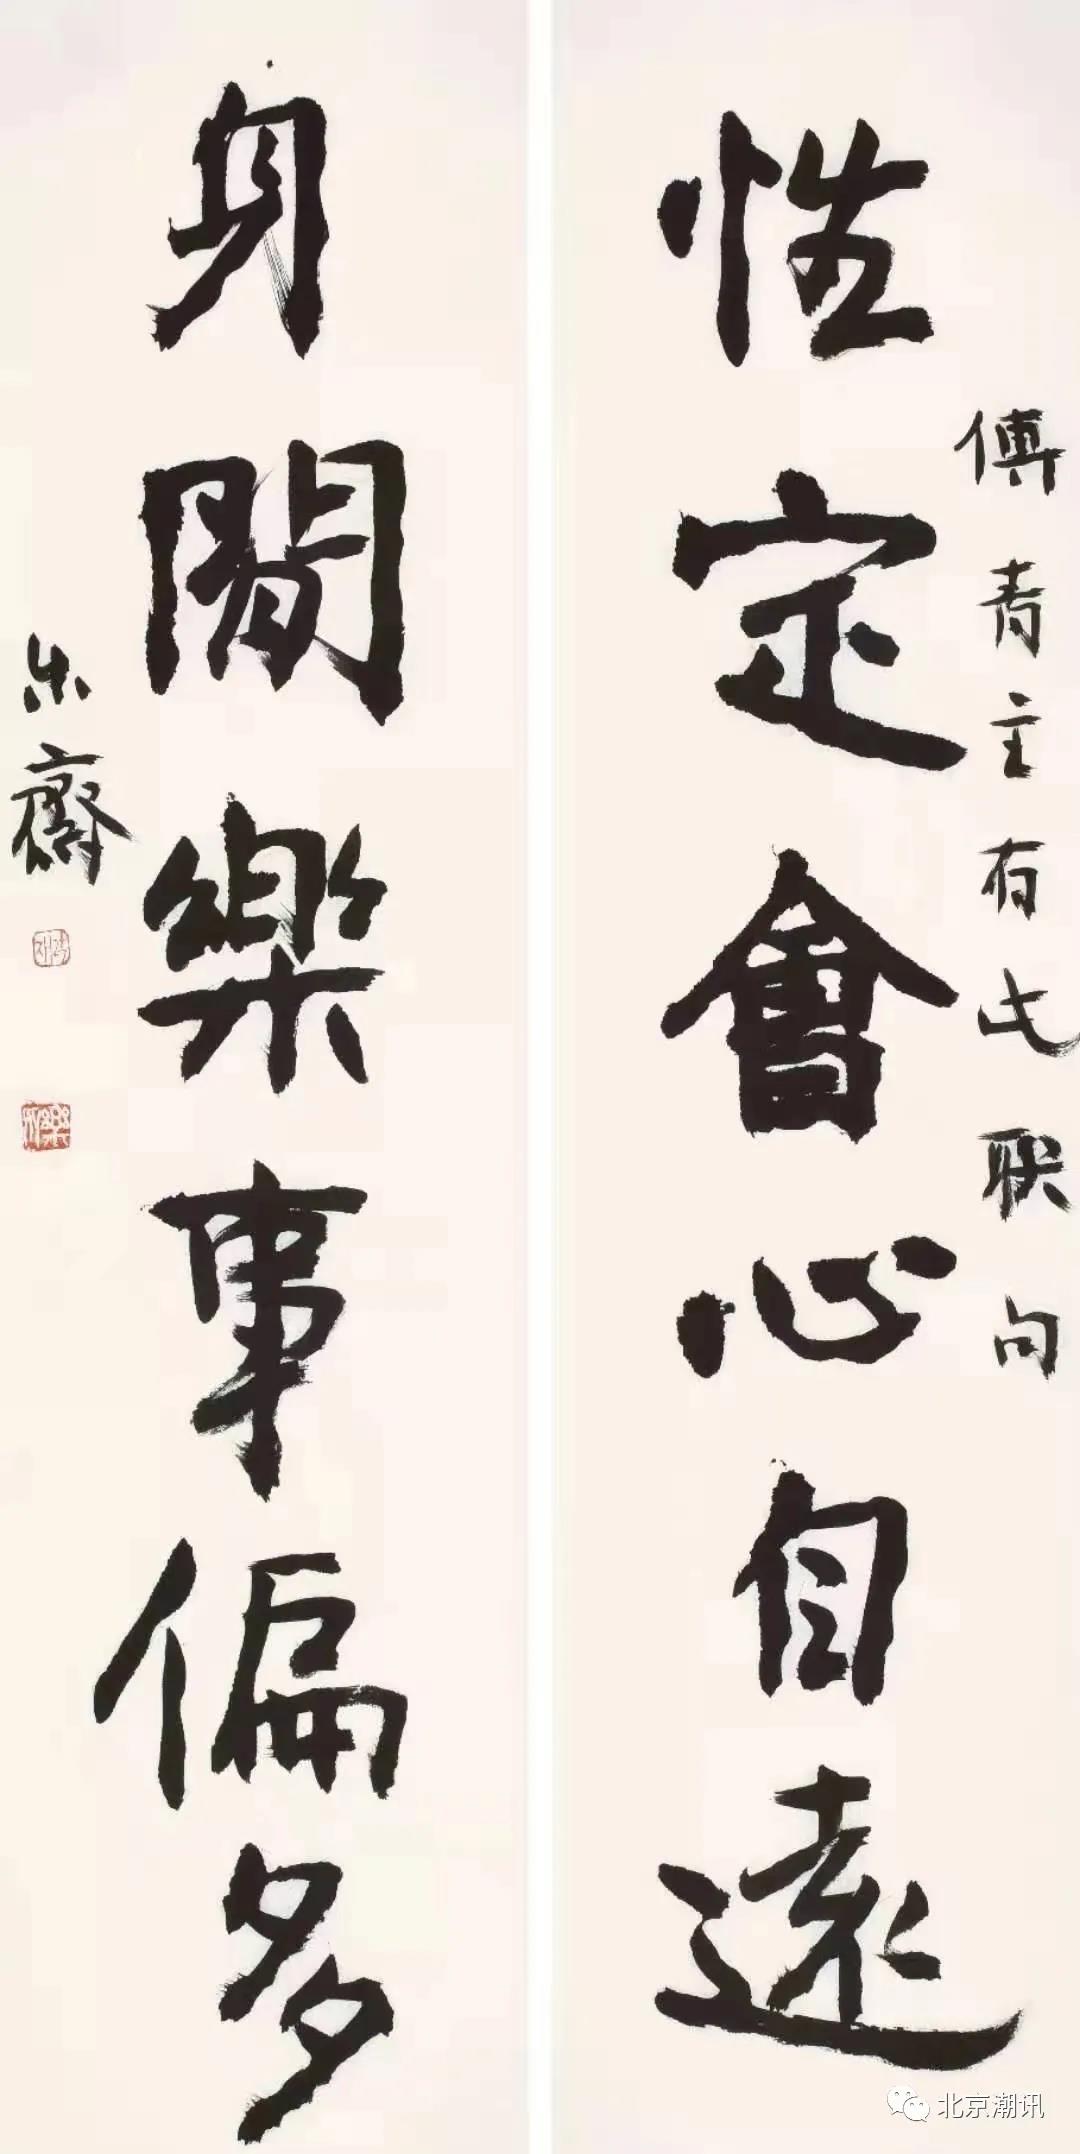 性定會心自遠
傅青主有此联句
身閒樂事偏多
乐齋
北京潮讯